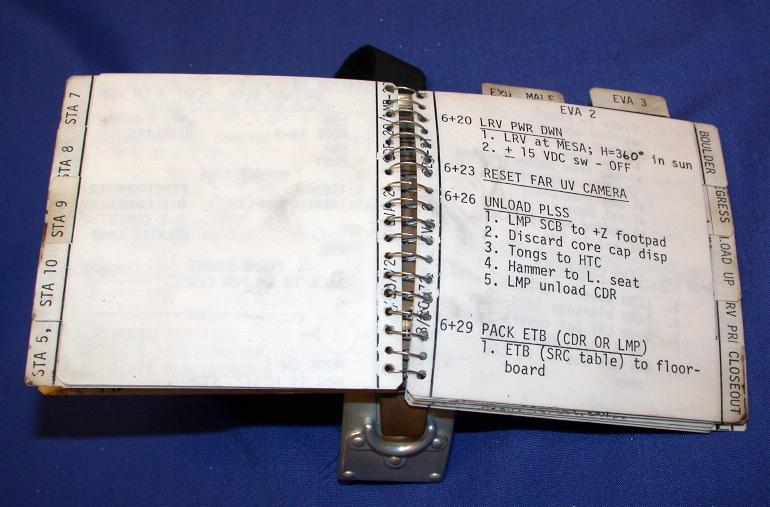 STA 7
STA 8
STA 9
STA 10
STA 5,
EVA 3
EVA 2
6+20 LRV PWR DWN
1. LRV at MESA; H=360° in sun
2. ± 15 VDC sw - OFF
6+23 RESET FAR UV CAMERA
6+26 UNLOAD PLSS
1. LMP SCB to +Z footpad
2. Discard core cap disp
3. Tongs to HTC
4. Hammer to L. seat
5. LMP unload CDR
6+29 PACK ETB (CDR OR LMP)
1. ETB (SRC table) to floor-
board
BOULDER
GRESS
LOAD UP
RV PRI
CLOSEOUT